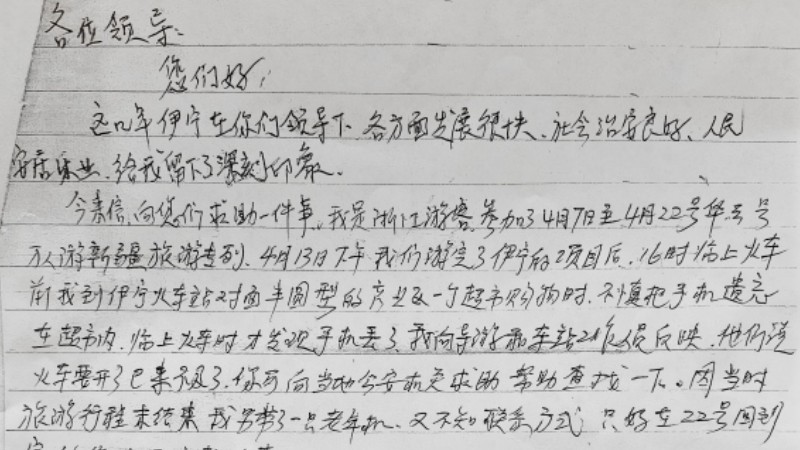 各位领导:
您们好,
这几年伊宁在你们领导下、各方面发展很快、社会治安良好、人民
安居乐业、给我留下了深刻印象。
今来信,向您们求助一件事。我是浙江游客,参加了4月7日至4月22号华云号
游新疆旅游专列、4月13日下午我们游完了伊宁的2项目后,16时临上火车
前我到伊宁火车站对面半圆型的产业及一个超市购物时、不慎把手机遗忘
在超市内、临上火车时才发现手机丢了、我向导游和车站工作人员反映、他们说
火车要开了已来不及了、你可向当地公安机关求助帮助查找一下。因当时
旅游行程未结束我另带了一只老年机、又不知联系方式,只好在22号回到